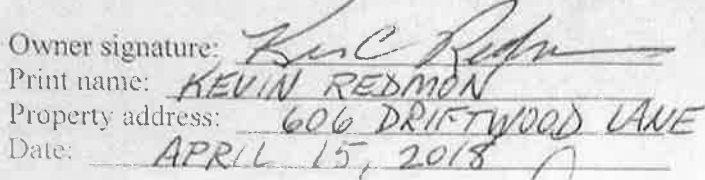 Owner signature: Kevin C Redmon
Print name: KEVIN REDMON
Property address: 606 DRIFTWOOD LANE
Date: APRIL 15, 2018